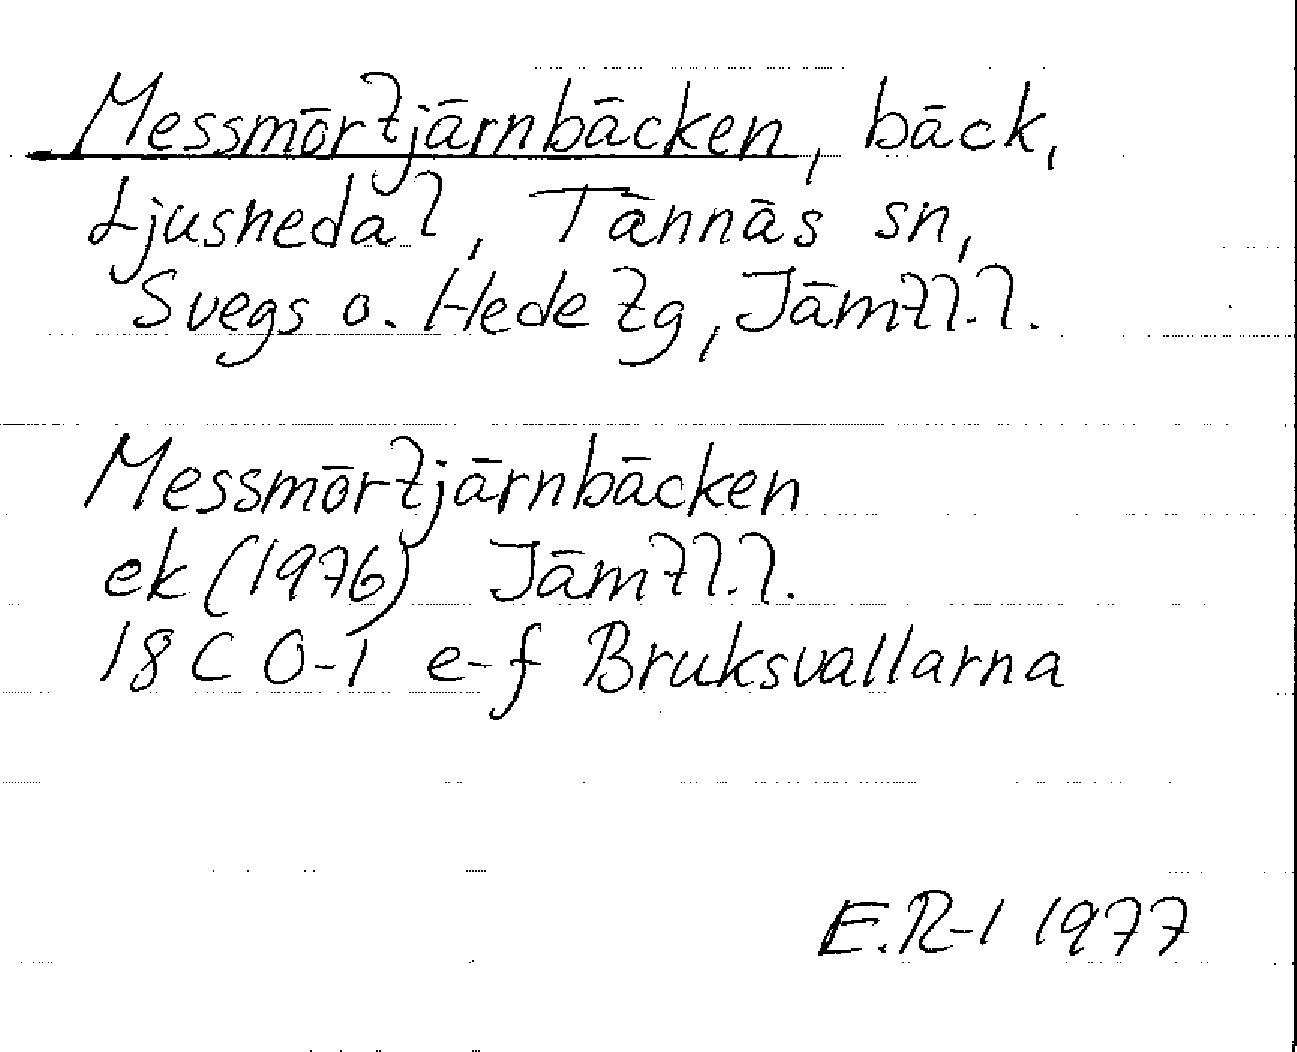 Messmörtjärnbäcken, bäck,
Ljusnedal, Tännäs sn,
Svegs o. Hede tg, Jämtl.l.
Messmörtjärnbäcken
ek (1976) Jämtl.l.
18 C 0-1 e-f Bruksvallarna
E.R-l 1977